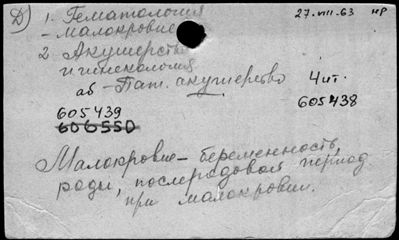 Д) 1. Гематология 27.VIII.63 нр
- малокровие
2 Акушерство
и гинекология
аб - Пат. акушерство 4 шт.
605439 605438
606550
Малокровие - беременность,
роды, послеродовой период
при малокровии.